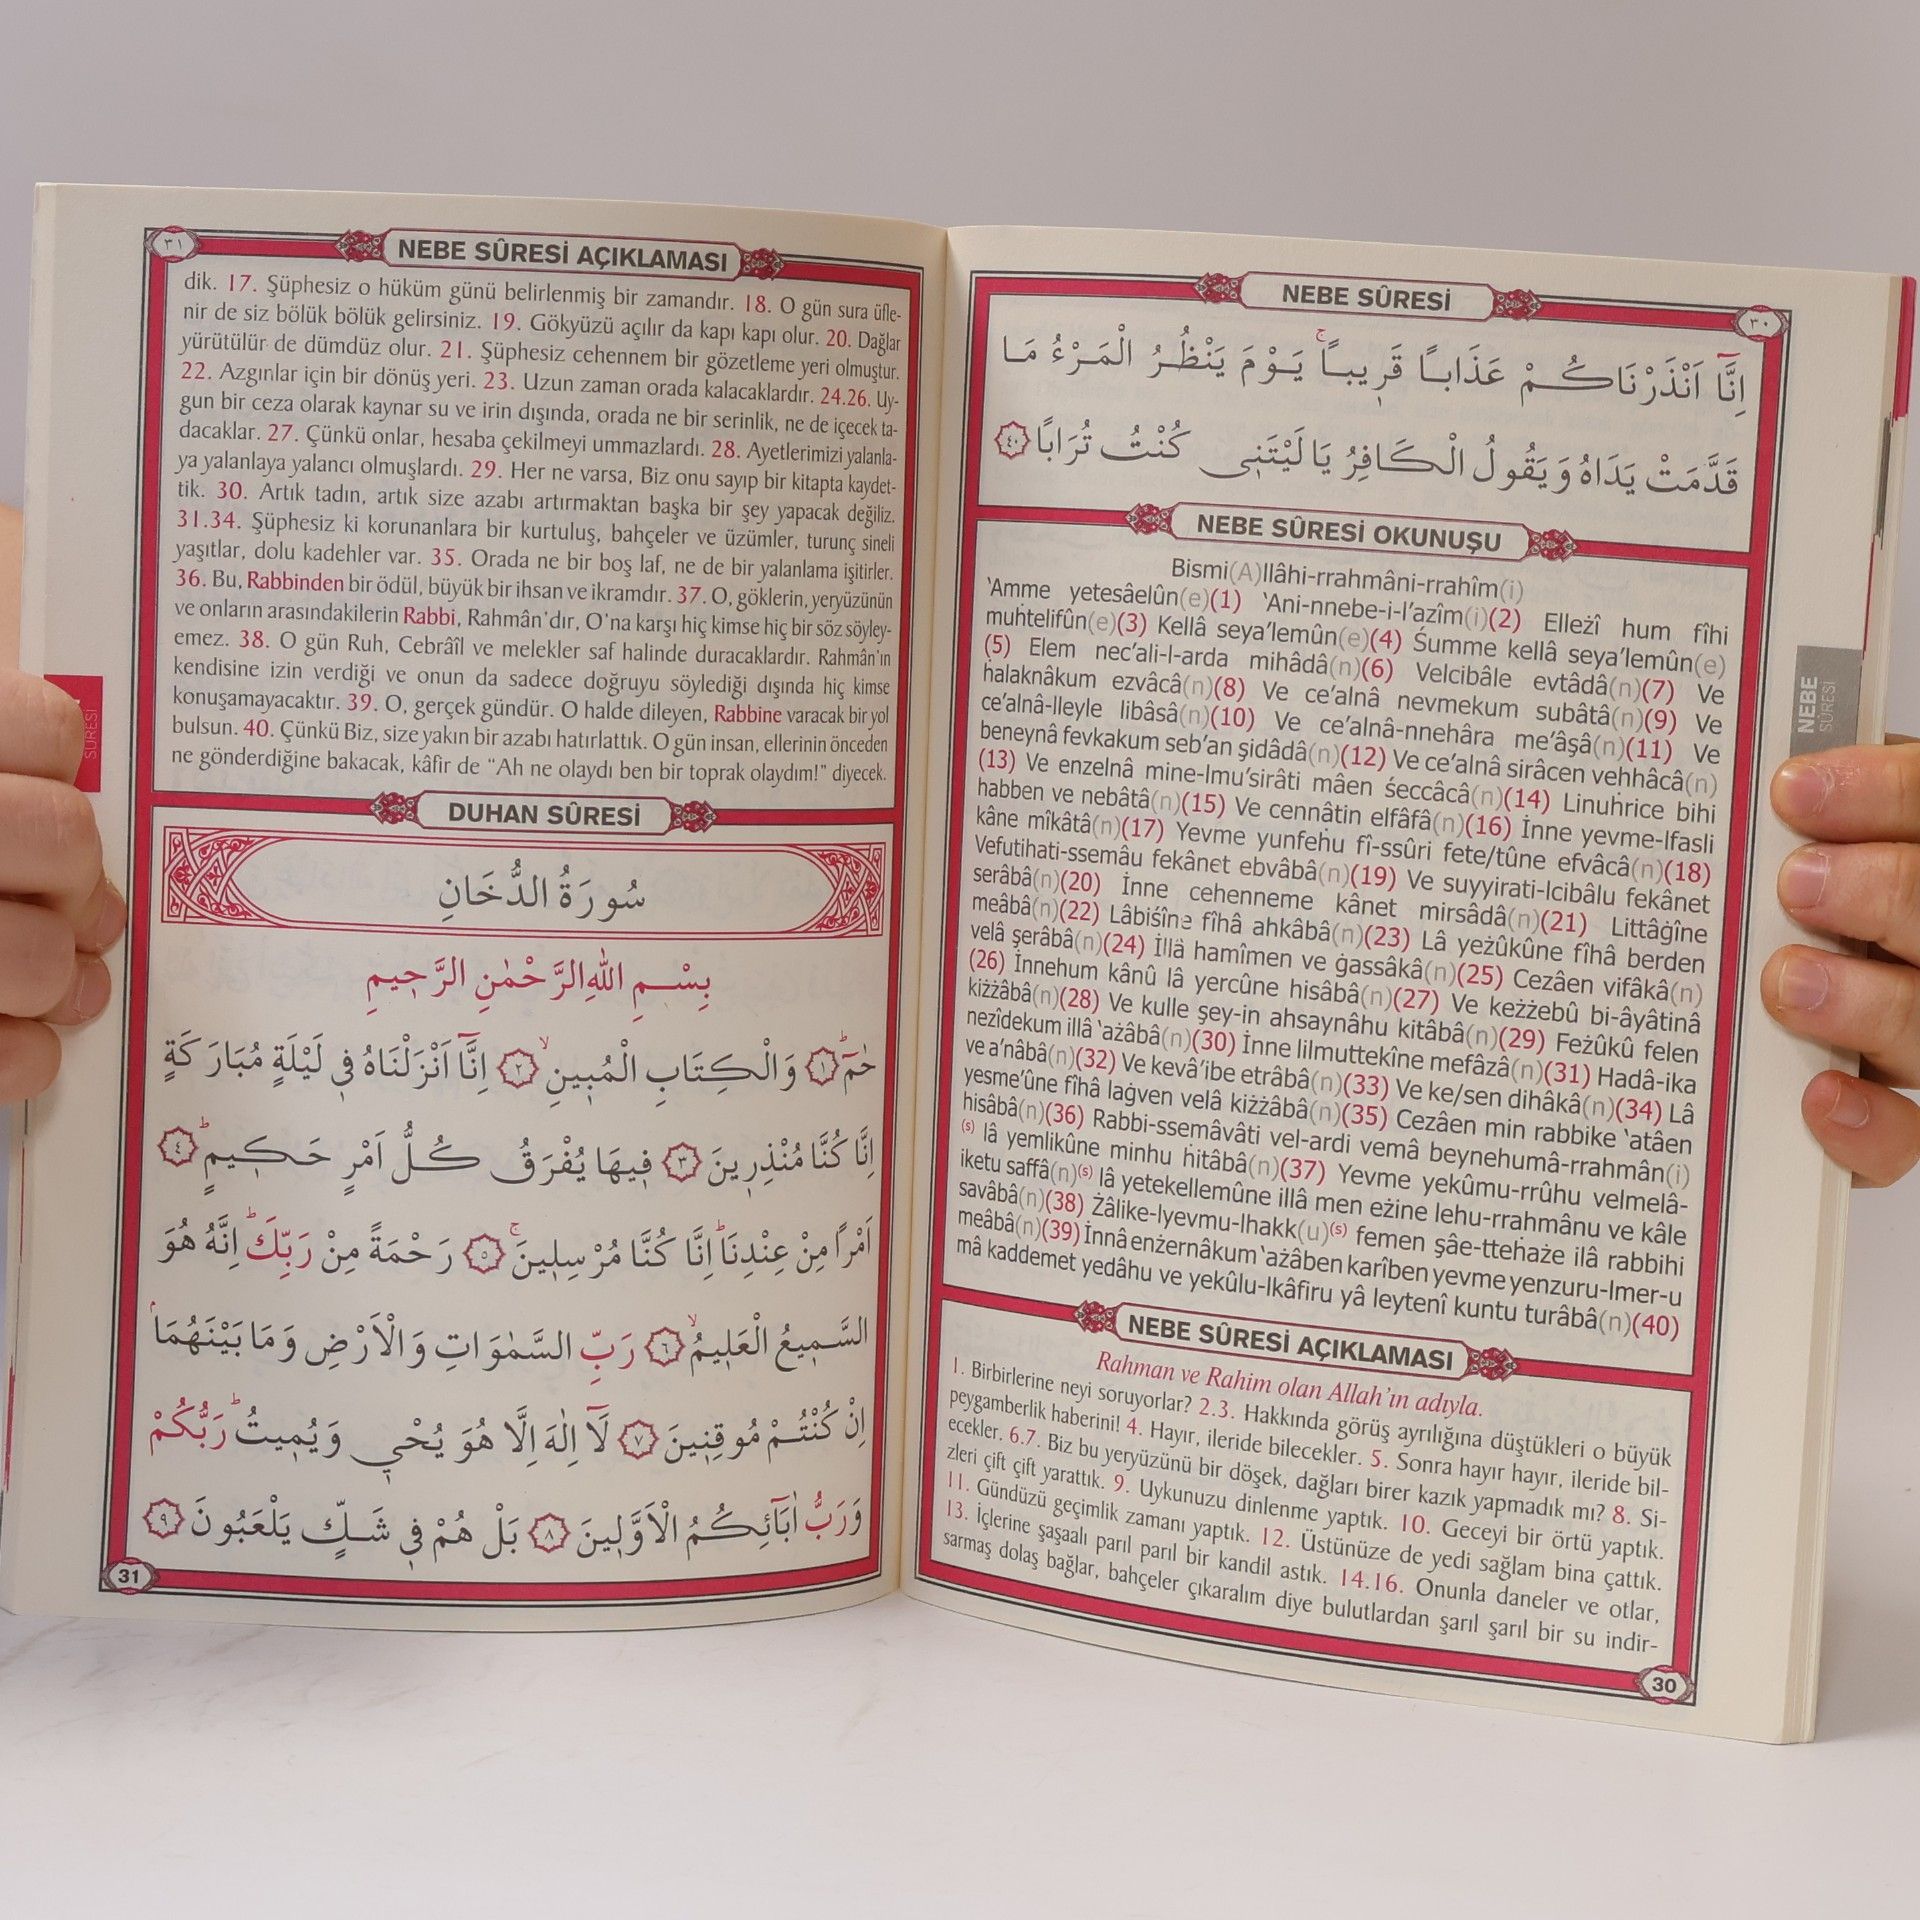 NEBE SÛRESİ
٣٠
اِنَّٓا اَنْذَرْنَاكُمْ عَذَابًا قَرٖيبًاۚ يَوْمَ يَنْظُرُ الْمَرْءُ مَا
قَدَّمَتْ يَدَاهُ وَيَقُولُ الْكَافِرُ يَالَيْتَنٖى كُنْتُ تُرَابًا ﴿٤٠﴾
NEBE SÛRESİ OKUNUŞU
Bismi(A)llâhi-rrahmâni-rrahîm(i)
'Amme yetesâelûn(e)(1) 'Ani-nnebe-i-l'azîm(i)(2) Elleżî hum fîhi
muḣtelifûn(e)(3) Kellâ seya'lemûn(e)(4) Śumme kellâ seya'lemûn(e)
(5) Elem nec'ali-l-arda mihâdâ(n)(6) Velcibâle evtâdâ(n)(7) Ve
ḣalaknâkum ezvâcâ(n)(8) Ve ce'alnâ nevmekum subâtâ(n)(9) Ve
ce'alnâ-lleyle libâsâ(n)(10) Ve ce'alnâ-nnehâra me'âşâ(n)(11) Ve
beneynâ fevkakum seb'an şidâdâ(n)(12) Ve ce'alnâ sirâcen vehhâcâ(n)
(13) Ve enzelnâ mine-lmu'sirâti mâen śeccâcâ(n)(14) Linuḣrice bihi
habben ve nebâtâ(n)(15) Ve cennâtin elfâfâ(n)(16) İnne yevme-lfasli
kâne mîkâtâ(n)(17) Yevme yunfeḣu fî-ssûri fete/tûne efvâcâ(n)(18)
Vefutihati-ssemâu fekânet ebvâbâ(n)(19) Ve suyyirati-lcibâlu fekânet
serâbâ(n)(20) İnne cehenneme kânet mirsâdâ(n)(21) Littâġîne
meâbâ(n)(22) Lâbiśîne fîhâ ahkâbâ(n)(23) Lâ yeżûkûne fîhâ berden
velâ şerâbâ(n)(24) İllâ hamîmen ve ġassâkâ(n)(25) Cezâen vifâkâ(n)
(26) İnnehum kânû lâ yercûne hisâbâ(n)(27) Ve keżżebû bi-âyâtinâ
kiżżâbâ(n)(28) Ve kulle şey-in ahsaynâhu kitâbâ(n)(29) Feżûkû felen
nezîdekum illâ 'ażâbâ(n)(30) İnne lilmuttekîne mefâzâ(n)(31) Hadâ-ika
ve a'nâbâ(n)(32) Ve kevâ'ibe etrâbâ(n)(33) Ve ke/sen dihâkâ(n)(34) Lâ
yesme'ûne fîhâ laġven velâ kiżżâbâ(n)(35) Cezâen min rabbike 'atâen
hisâbâ(n)(36) Rabbi-ssemâvâti vel-ardi vemâ beynehumâ-rrahmân(i)
(s) lâ yemlikûne minhu ḣitâbâ(n)(37) Yevme yekûmu-rrûhu velmelâ-
iketu saffâ(n)(s) lâ yetekellemûne illâ men eżine lehu-rrahmânu ve kâle
savâbâ(n)(38) Żâlike-lyevmu-lhakk(u)(s) femen şâe-tteḣaże ilâ rabbihi
meâbâ(n)(39) İnnâ enżernâkum 'ażâben karîben yevme yenzuru-lmer-u
mâ kaddemet yedâhu ve yekûlu-lkâfiru yâ leytenî kuntu turâbâ(n)(40)
NEBE SÛRESİ AÇIKLAMASI
Rahman ve Rahim olan Allah'ın adıyla.
1. Birbirlerine neyi soruyorlar? 2.3. Hakkında görüş ayrılığına düştükleri o büyük
peygamberlik haberini! 4. Hayır, ileride bilecekler. 5. Sonra hayır hayır, ileride bil-
ecekler. 6.7. Biz bu yeryüzünü bir döşek, dağları birer kazık yapmadık mı? 8. Si-
zleri çift çift yarattık. 9. Uykunuzu dinlenme yaptık. 10. Geceyi bir örtü yaptık.
11. Gündüzü geçimlik zamanı yaptık. 12. Üstünüze de yedi sağlam bina çattık.
13. İçlerine şaşaalı parıl parıl bir kandil astık. 14.16. Onunla daneler ve otlar,
sarmaş dolaş bağlar, bahçeler çıkaralım diye bulutlardan şarıl şarıl bir su indir-
30
NEBE
SÛRESİ
٣١
NEBE SÛRESİ AÇIKLAMASI
dik. 17. Şüphesiz o hüküm günü belirlenmiş bir zamandır. 18. O gün sura üfle-
nir de siz bölük bölük gelirsiniz. 19. Gökyüzü açılır da kapı kapı olur. 20. Dağlar
yürütülür de dümdüz olur. 21. Şüphesiz cehennem bir gözetleme yeri olmuştur.
22. Azgınlar için bir dönüş yeri. 23. Uzun zaman orada kalacaklardır. 24.26. Uy-
gun bir ceza olarak kaynar su ve irin dışında, orada ne bir serinlik, ne de içecek ta-
dacaklar. 27. Çünkü onlar, hesaba çekilmeyi ummazlardı. 28. Ayetlerimizi yalanla-
ya yalanlaya yalancı olmuşlardı. 29. Her ne varsa, Biz onu sayıp bir kitapta kaydet-
tik. 30. Artık tadın, artık size azabı artırmaktan başka bir şey yapacak değiliz.
31.34. Şüphesiz ki korunanlara bir kurtuluş, bahçeler ve üzümler, turunç sineli
yaşıtlar, dolu kadehler var. 35. Orada ne bir boş laf, ne de bir yalanlama işitirler.
36. Bu, Rabbinden bir ödül, büyük bir ihsan ve ikramdır. 37. O, göklerin, yeryüzünün
ve onların arasındakilerin Rabbi, Rahmân'dır, O'na karşı hiç kimse hiç bir söz söyley-
emez. 38. O gün Ruh, Cebrâîl ve melekler saf halinde duracaklardır. Rahmân'ın
kendisine izin verdiği ve onun da sadece doğruyu söylediği dışında hiç kimse
konuşamayacaktır. 39. O, gerçek gündür. O halde dileyen, Rabbine varacak bir yol
bulsun. 40. Çünkü Biz, size yakın bir azabı hatırlattık. O gün insan, ellerinin önceden
ne gönderdiğine bakacak, kâfir de "Ah ne olaydı ben bir toprak olaydım!" diyecek.
DUHAN SÛRESİ
سُورَةُ الدُّخَانِ
بِسْمِ اللّٰهِ الرَّحْمٰنِ الرَّحٖيمِ
حٰمٓۜ ﴿١﴾ وَالْكِتَابِ الْمُبٖينِۙ ﴿٢﴾ اِنَّٓا اَنْزَلْنَاهُ فٖى لَيْلَةٍ مُبَارَكَةٍ
اِنَّا كُنَّا مُنْذِرٖينَ ﴿٣﴾ فٖيهَا يُفْرَقُ كُلُّ اَمْرٍ حَكٖيمٍۜ ﴿٤﴾
اَمْرًا مِنْ عِنْدِنَاۜ اِنَّا كُنَّا مُرْسِلٖينَۚ ﴿٥﴾ رَحْمَةً مِنْ رَبِّكَۜ اِنَّهُ هُوَ
السَّمٖيعُ الْعَلٖيمُۙ ﴿٦﴾ رَبِّ السَّمٰوَاتِ وَالْاَرْضِ وَمَا بَيْنَهُمَاۢ
اِنْ كُنْتُمْ مُوقِنٖينَ ﴿٧﴾ لَٓا اِلٰهَ اِلَّا هُوَ يُحْيٖ وَيُمٖيتُۜ رَبُّكُمْ
وَرَبُّ اٰبَٓائِكُمُ الْاَوَّلٖينَ ﴿٨﴾ بَلْ هُمْ فٖى شَكٍّ يَلْعَبُونَ ﴿٩﴾
31
SÛRESİ